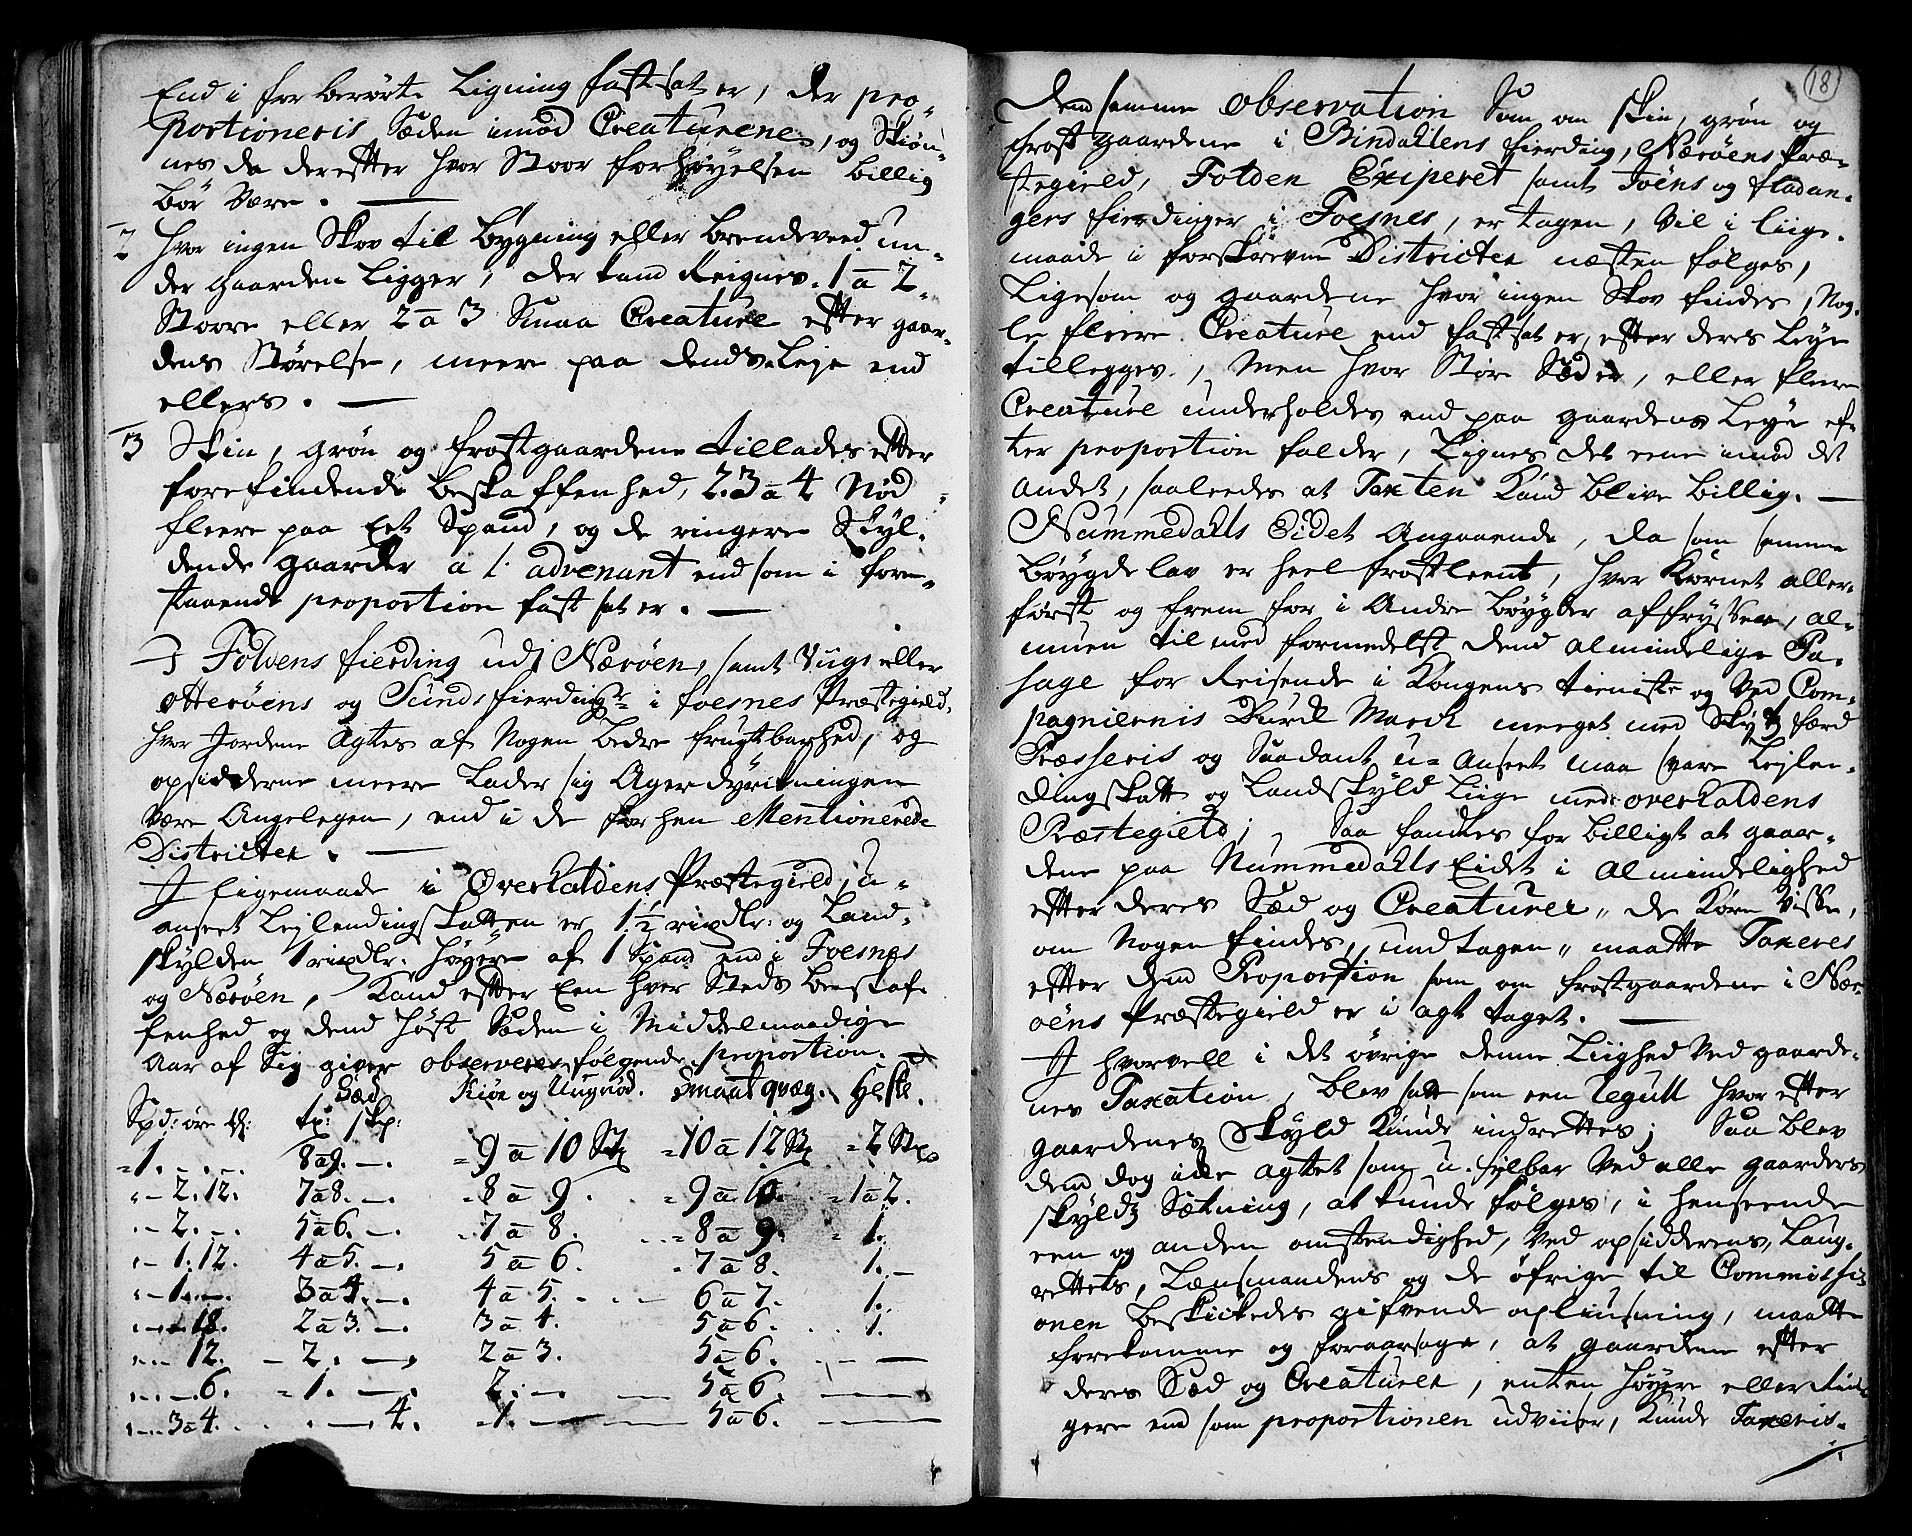 End i for berørte Ligning fast sat er, der pro-
portioneris Sæden imod Creaturene, og Skiøn-
nes da derefter hvor Stoor forhøyelsen billig
bør være. —
2 hvor ingen Skov til bygning eller brendeveed un-
der gaarden Ligger, der kand Reignes 1 a 2
Stoore eller 2 a 3 Smaa Creature efter gaar-
dens Størelse, meere paa dends Leje end
ellers. —
3 Skin, grøn og frostgaardene tillades efter
forefindende beskaffenhed, 2. 3 a 4 Nød
fleere paa Eet Spand, og de ringere Skyl-
dende gaarder a l' advenant end som i fore-
staaende proportion fast sat er. —
J Foldens fierding udj Nærøen, samt Viigs eller
Otterøens og Sunds fierdinger i foesnes Præstegield,
hvor Jordene Agtes af Nogen bedre frugtbarhed, og
opsidderne meere Lader sig Ager dyrkningen
være Angelegen, end i de for hen Mentionerede
Districter. —
J Ligemaade i Overhaldens Præstegield; u-
anseet Lejlendingskatten er 1½ rixdlr: og Land-
skylden 1 rixdlr. høyere af 1 Spand end i Foesnes
og Nærøen, Kand efter Een hver Steds beskaf-
fenhed og dend høst Sæden i Middelmaadige
Aar af Sig giver observeres følgende proportion. —
Sæd Kiør og Ungnød. Smaat qvæg. Heste.
Spd: øre ℔: tr: skp:
" 1. — . — . 8 a 9. — . " 9 a 10 St " 10 a 12 St " 2 St
" — 2. 12. 7 a 8. — . " 8 a 9. " 9 a 10. " 1 a 2.
" — 2. — . 5 a 6. — . " 7 a 8. " 8 a 9. " 1.
" — 1. 12. 4 a 5. — . 5 a 6. " 7 a 8. 1. —
" — 1. — . 3 a 4. — . 4 a 5. . — 6 a 7. 1.
" — " 18. 2 a 3. — . 3 a 4. 5 a 6. . . 1.
" — 12. — 2. — . 2 a 3. 5 a 6. . — —
" — 6. " 1. — . 2. — . — 5 a 6. — —
" — 3 a 4. . . — 4. " 1. — — 5 a 6. — —
18
Dend samme observation Som om skin, grøn og
frost gaardene i Bindallens fierding, Nærøens Præ-
stegield, Folden Exiperet samt Foëns og fladan-
gers fierdinger i Foesnes, er tagen, vil i liige-
maade i forskrevne Districter næsten følges,
Ligesom og gaardene hvor ingen Skov findes, Nog-
le fleere Creature end fast sat er, efter deres Leye
tillegges, Men hvor Stør Sæd er, eller fleere
Creature underholdes end paa gaardens Leye ef-
ter proportion falder, Lignes det eene imod det
andet, saaledes at Taxten Kand blive billig. —
Nummedahls Eidet Angaaende, da som samme
bøygdelav er heel frostleent, hvor Kornet aller-
først og frem for i Andre bøygder affryser, Al-
muen til med formedelst dend almindelige Pa-
sage for Reisende i Kongens tieniste og ved Com-
pagniernis Durch March meeget med Skydtz færd
Præsseris og Saadant u-anseet maa svare Lejlen-
dingskatt og Landskyld Liige med overhaldens
Præstegield; Saa fandtes for billigt at gaar-
dene paa Nummedahls Eidet i Almindelighed
efter deres Sæd og Creaturer " de Korn visse,
om Nogen findes, undtagen " maatte Taxeres
efter dend Proportion som om frostgaardene i Nær-
øens Præstegield er i agt taget. —
J hvorvell i det øvrige denne Liighed ved gaarde-
nes Taxation, blev satt som een Regull hvor efter
gaardenes Skyld Kunde indrettes; Saa blev
dend dog icke agtet som u-feylbar ved alle gaarders
skyldz Sætning, at kunde følges, i henseende
een og anden omstendighed, ved opsiddernes, Laug-
rettets, Lænsmandens og de øfrige til Commissi-
onen beskickedes gifvende opliusning, maatte
forekomme og foraarsage, at gaardene efter
deres Sæd og Creaturer, enten høyere eller Rin-
gere end som proportionen udviiser, Kunde Taxeris.